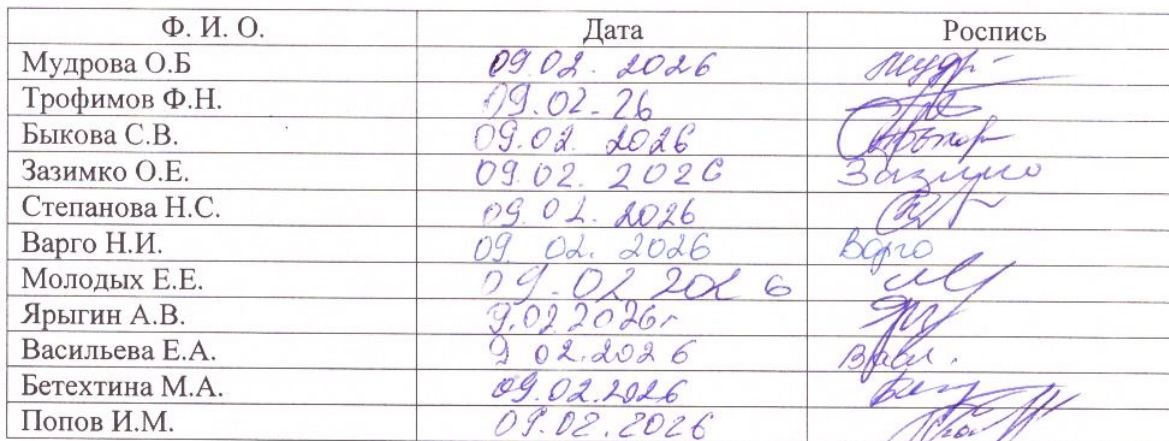 Ф. И. О. Дата Роспись
Мудрова О.Б 09.02.2026 Мудр
Трофимов Ф.Н. 09.02.26
Быкова С.В. 09.02.2026
Зазимко О.Е. 09.02.2026 Зазимко
Степанова Н.С. 09.02.2026
Варго Н.И. 09.02.2026 Варго
Молодых Е.Е. 09.02.2026
Ярыгин А.В. 9.02.2026г
Васильева Е.А. 9 02.2026 Васил.
Бетехтина М.А. 09.02.2026
Попов И.М. 09.02.2026